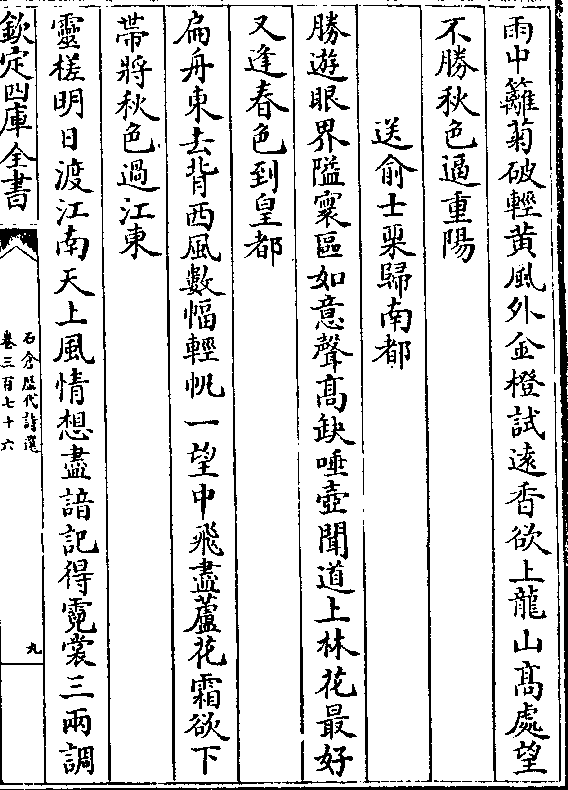 雨中籬菊破輕黄風外金橙試逺香欲上龍山髙處望
不勝秋色逼重陽
送俞士䅇歸南都
勝遊眼界隘寰區如意聲髙缺唾壺聞道上林花最好
又逢春色到皇都
扁舟東去背西風數幅輕帆一望中飛盡蘆花霜欲下
帶將秋色過江東
靈槎明日渡江南天上風情想盡諳記得霓裳三兩調
欽定四庫全書
石倉歴代詩選
卷三百七十六
九